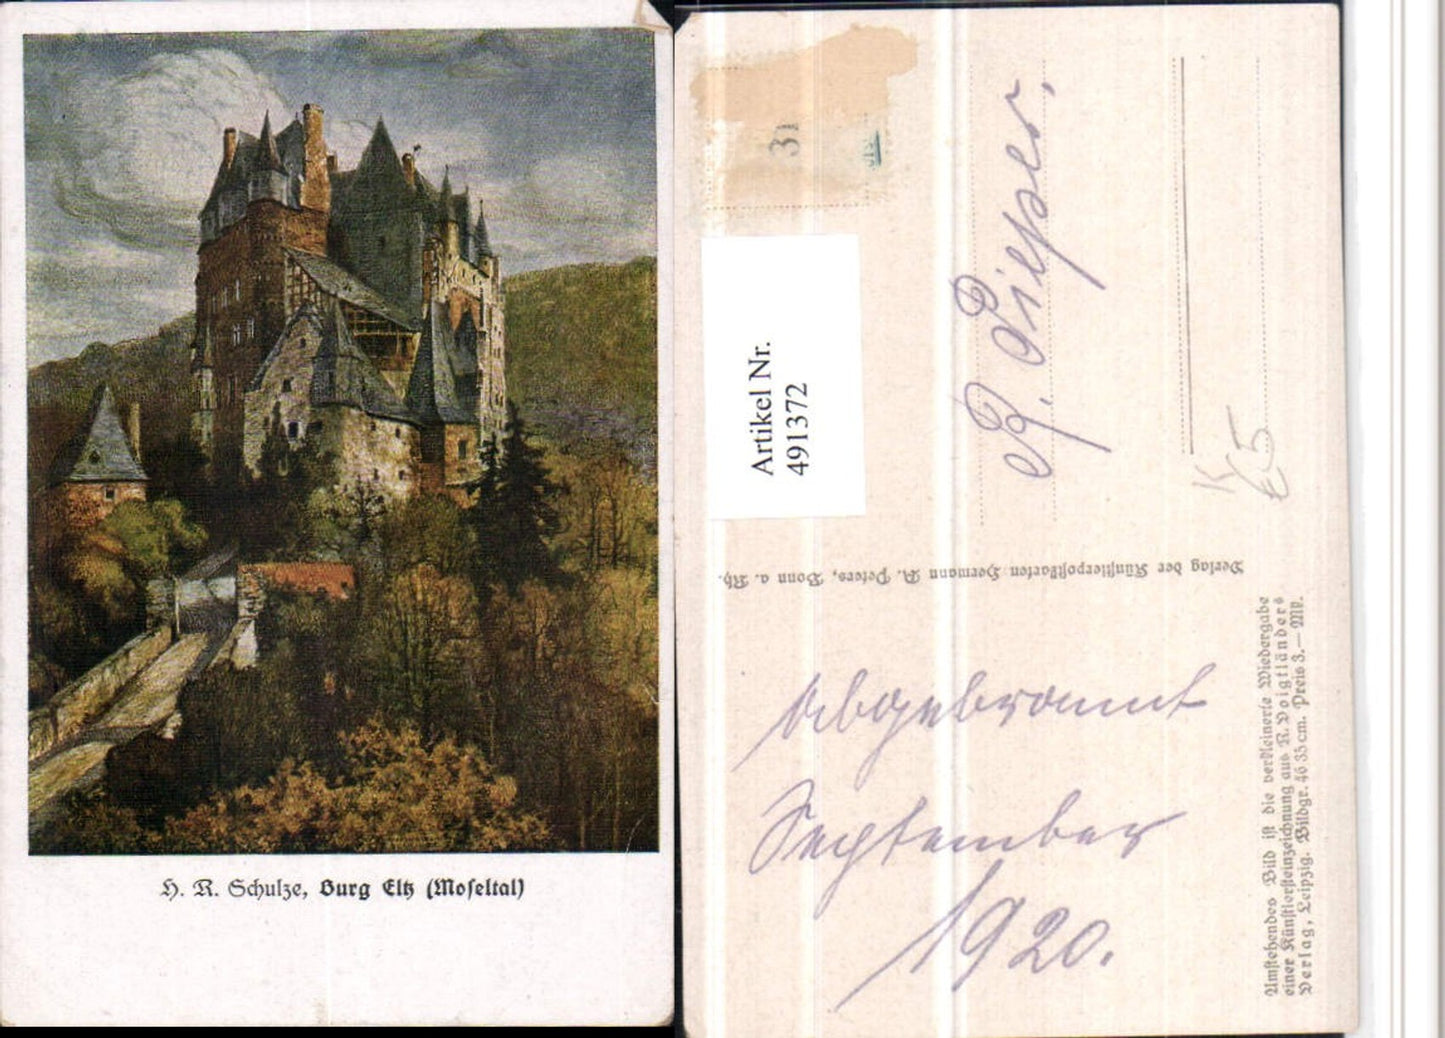 H. R. Schulze, Burg Eltz (Moseltal)
31
Artikel Nr.
491372
R. Pieper.
K
€5
Verlag der Künstlerpostkarten Hermann A. Peters, Bonn a. Rh.
Abgebrannt
September
1920.
Umstehendes Bild ist die verkleinerte Wiedergabe
einer Künstlersteinzeichnung aus R. Voigtländers
Verlag, Leipzig. Bildgr. 46 35 cm. Preis 3.— Mk.